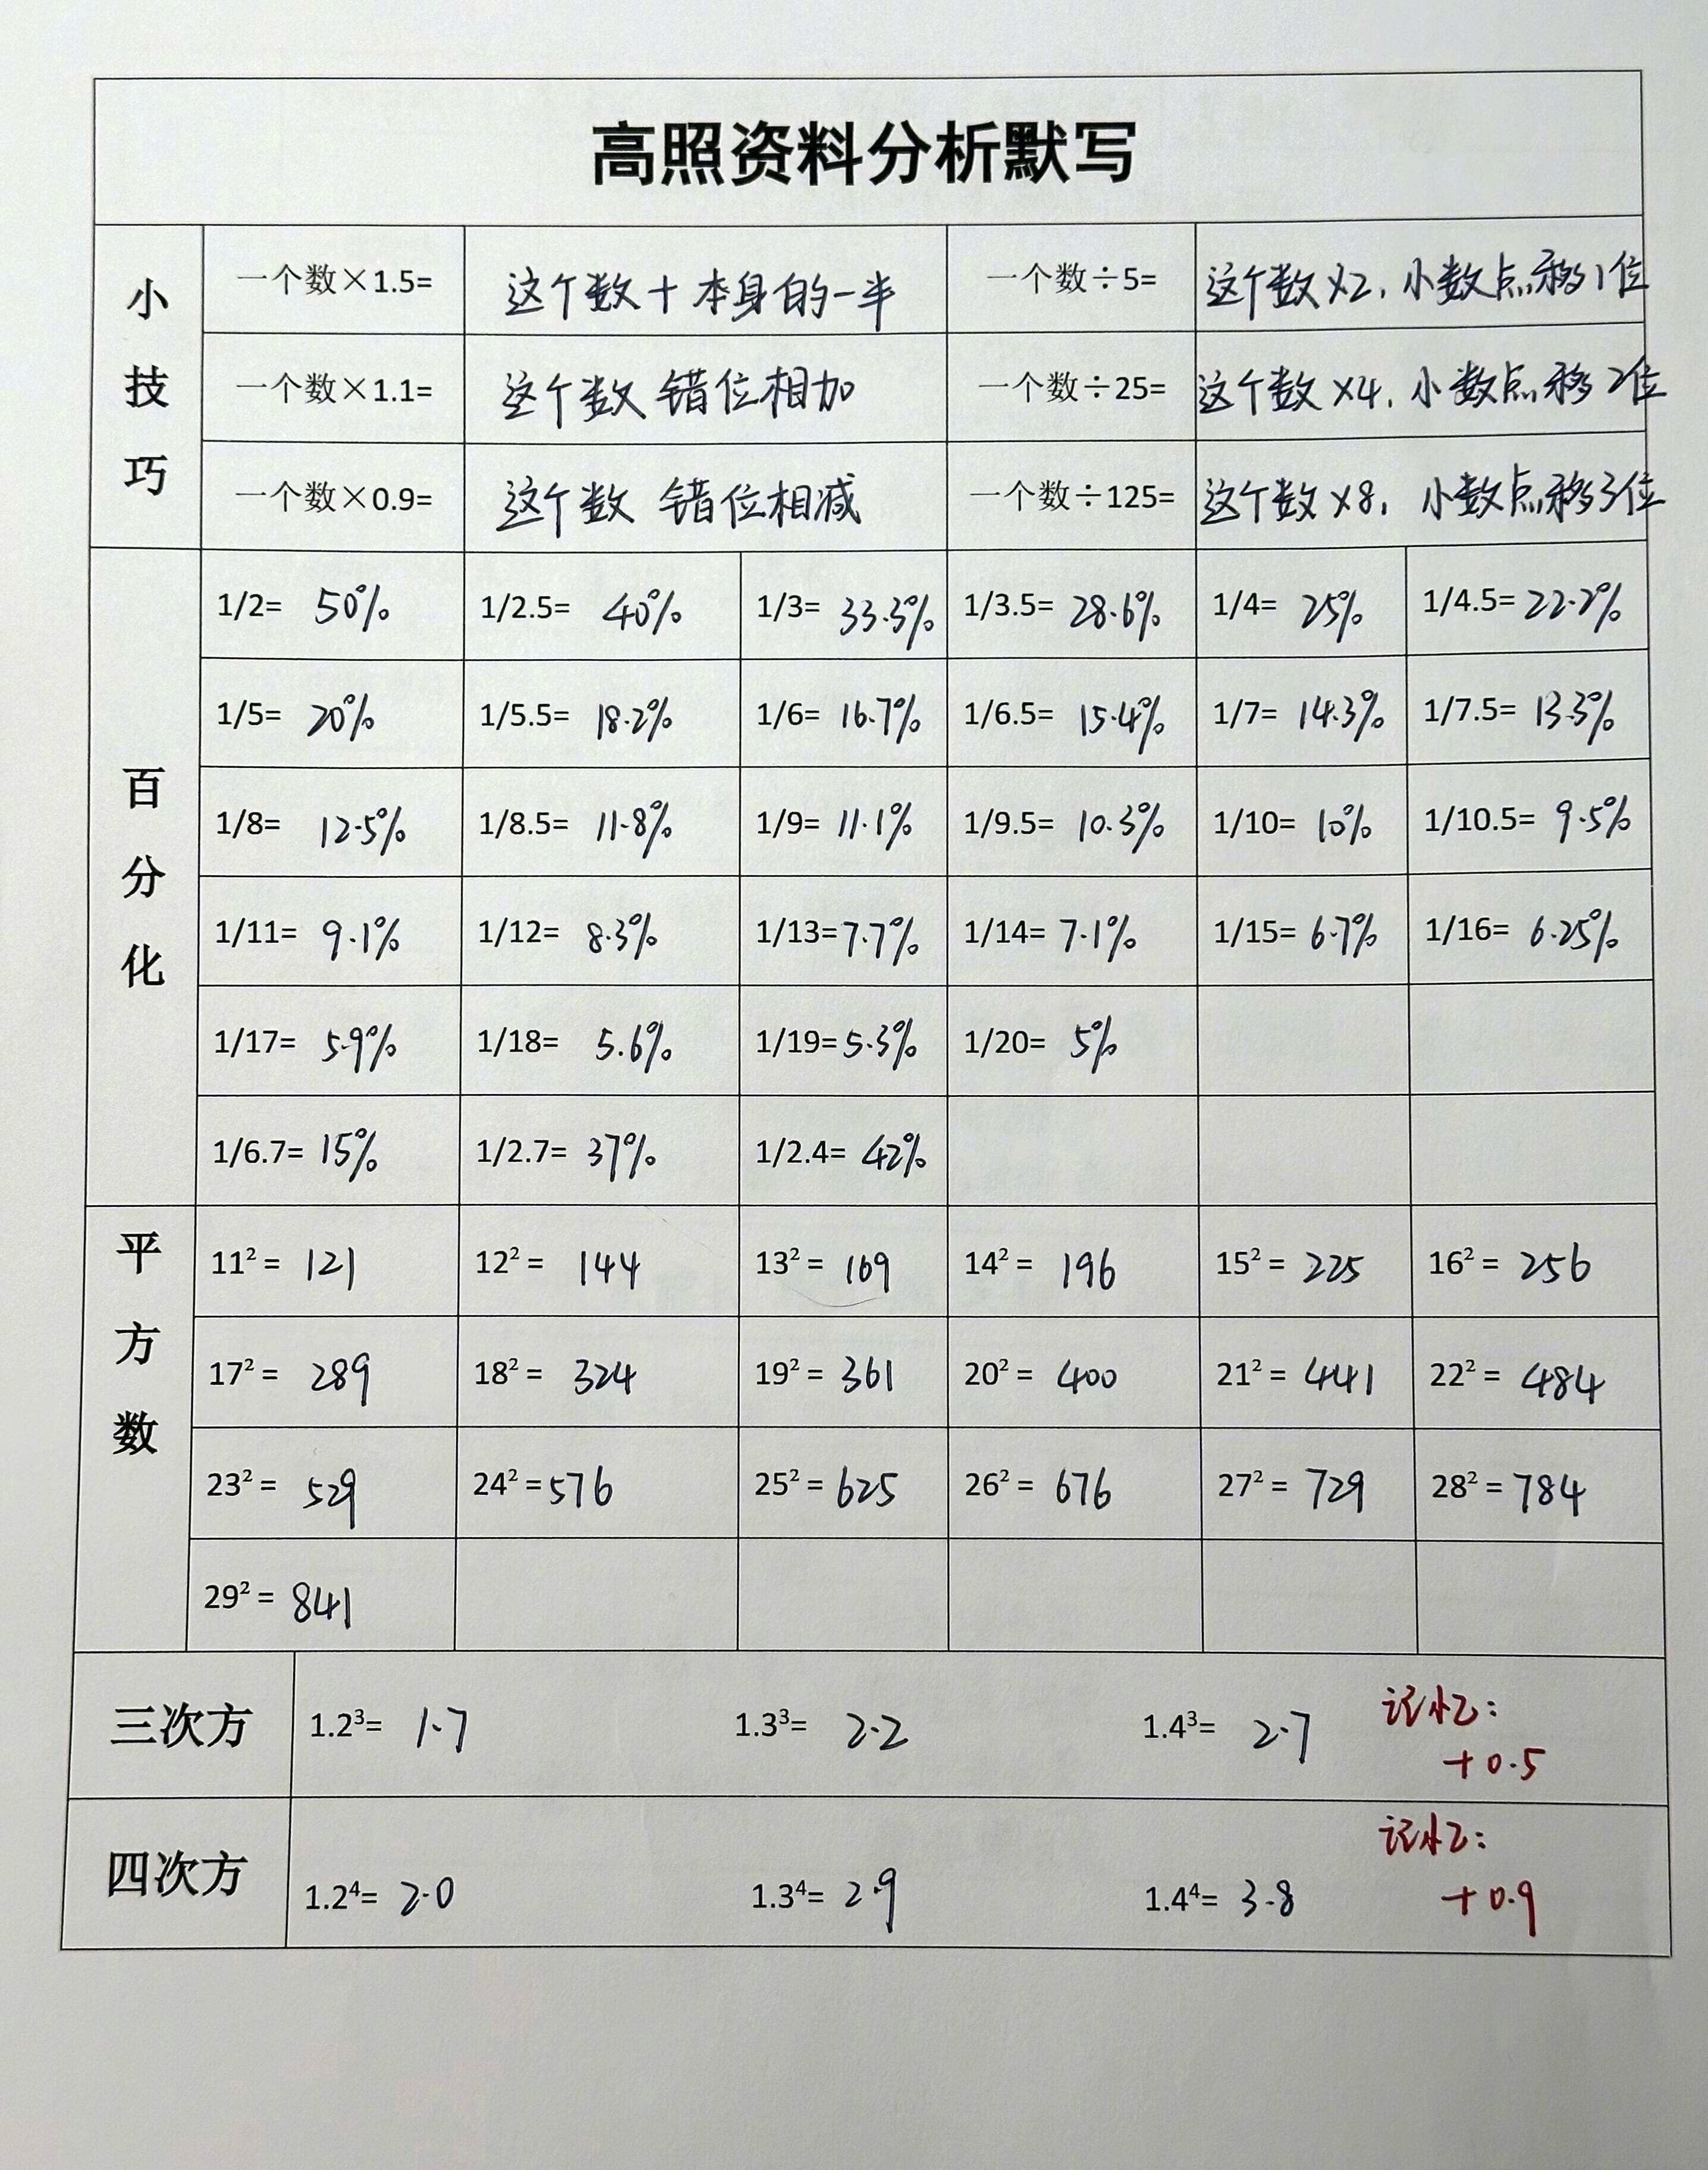 高照资料分析默写
小技巧
一个数×1.5= 这个数+本身的一半 一个数÷5= 这个数×2,小数点移1位
一个数×1.1= 这个数 错位相加 一个数÷25= 这个数×4,小数点移2位
一个数×0.9= 这个数 错位相减 一个数÷125= 这个数×8,小数点移3位
百分化
1/2= 50% 1/2.5= 40% 1/3= 33.3% 1/3.5= 28.6% 1/4= 25% 1/4.5= 22.2%
1/5= 20% 1/5.5= 18.2% 1/6= 16.7% 1/6.5= 15.4% 1/7= 14.3% 1/7.5= 13.3%
1/8= 12.5% 1/8.5= 11.8% 1/9= 11.1% 1/9.5= 10.3% 1/10= 10% 1/10.5= 9.5%
1/11= 9.1% 1/12= 8.3% 1/13= 7.7% 1/14= 7.1% 1/15= 6.7% 1/16= 6.25%
1/17= 5.9% 1/18= 5.6% 1/19= 5.3% 1/20= 5%
1/6.7= 15% 1/2.7= 37% 1/2.4= 42%
平方数
11²= 121 12²= 144 13²= 169 14²= 196 15²= 225 16²= 256
17²= 289 18²= 324 19²= 361 20²= 400 21²= 441 22²= 484
23²= 529 24²= 576 25²= 625 26²= 676 27²= 729 28²= 784
29²= 841
三次方 1.2³= 1.7 1.3³= 2.2 1.4³= 2.7 记忆:
+0.5
四次方 1.2⁴= 2.0 1.3⁴= 2.9 1.4⁴= 3.8 记忆:
+0.9